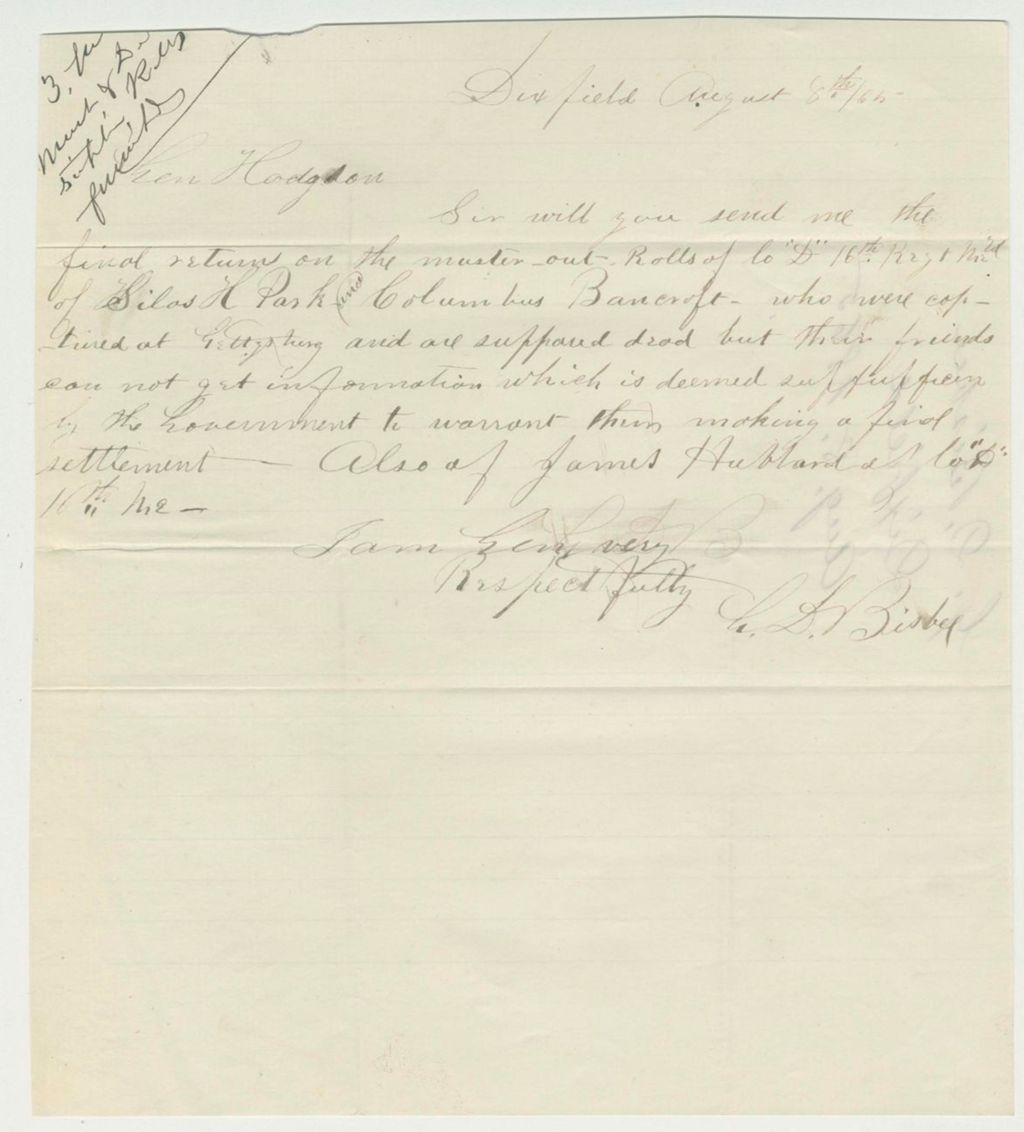 Dixfield August 8th/65
Gen Hodgdon
Sir will you send me the
final return on the muster-out-Rolls of Co "D" 16th Regt Me Vol
of Silas H Park and Columbus Bancroft - who were cap-
tured at Gettysburg and are supposed dead but their friends
can not get information which is deemed suffufficien
by the Government to warrant them making a final
settlement - Also of James Hubbard of Co "D"
16th Me -
I am Gen very
Respectfully
G. D. Bisbee